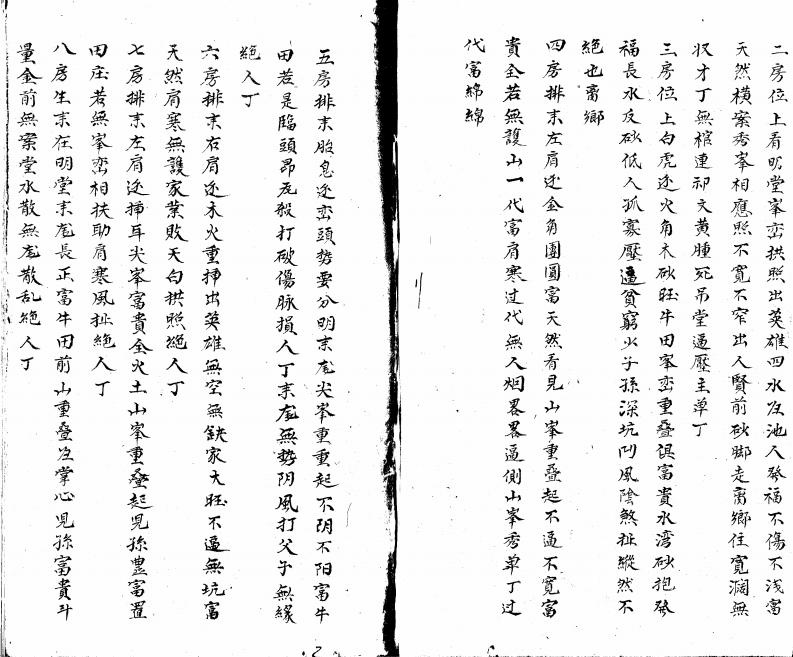 二房位上看明堂峯峦拱照出英雄四水及池人發福不傷不浅富
天然横案秀峯相應照不寬不窄出人賢前砂脚走离鄉住寬濶無
収才丁無棺連祁文黄腫死吊堂逼壓主单丁
三房位上白虎迖火角木砂旺牛田峯峦重叠俱富貴水湾砂抱發
福長水反砂低人孤寡壓逼貧窮火子孫深坑凹風陰煞扯縱然不
絕也离鄉
四房排來左肩迖金角團圓富天然看見山峯重叠起不逼不寬富
貴全若無護山一代富肩寒过代無人烟畧畧逼側山峯秀单丁过
代富綿綿
五房排來股息迖峦頭势要分明來龙尖峯重重起不阴不阳富牛
田若是臨頭昂龙殺打破傷脉損人丁來龙無势阴風打父子無緣
絕人丁
六房排來右肩迖木火重挿出英雄無空無缺家大旺不逼無坑富
天然肩寒無護家業敗天白拱照絕人丁
七房排來左肩迖挿耳尖峯富貴全火土山峯重叠起兒孫豊富置
田庄若無峯峦相扶助肩寒風扯絕人丁
八房生來在明堂來龙長正富牛田前山重叠及掌心兒孫富貴斗
量金前無案堂水散無龙散乱絕人丁